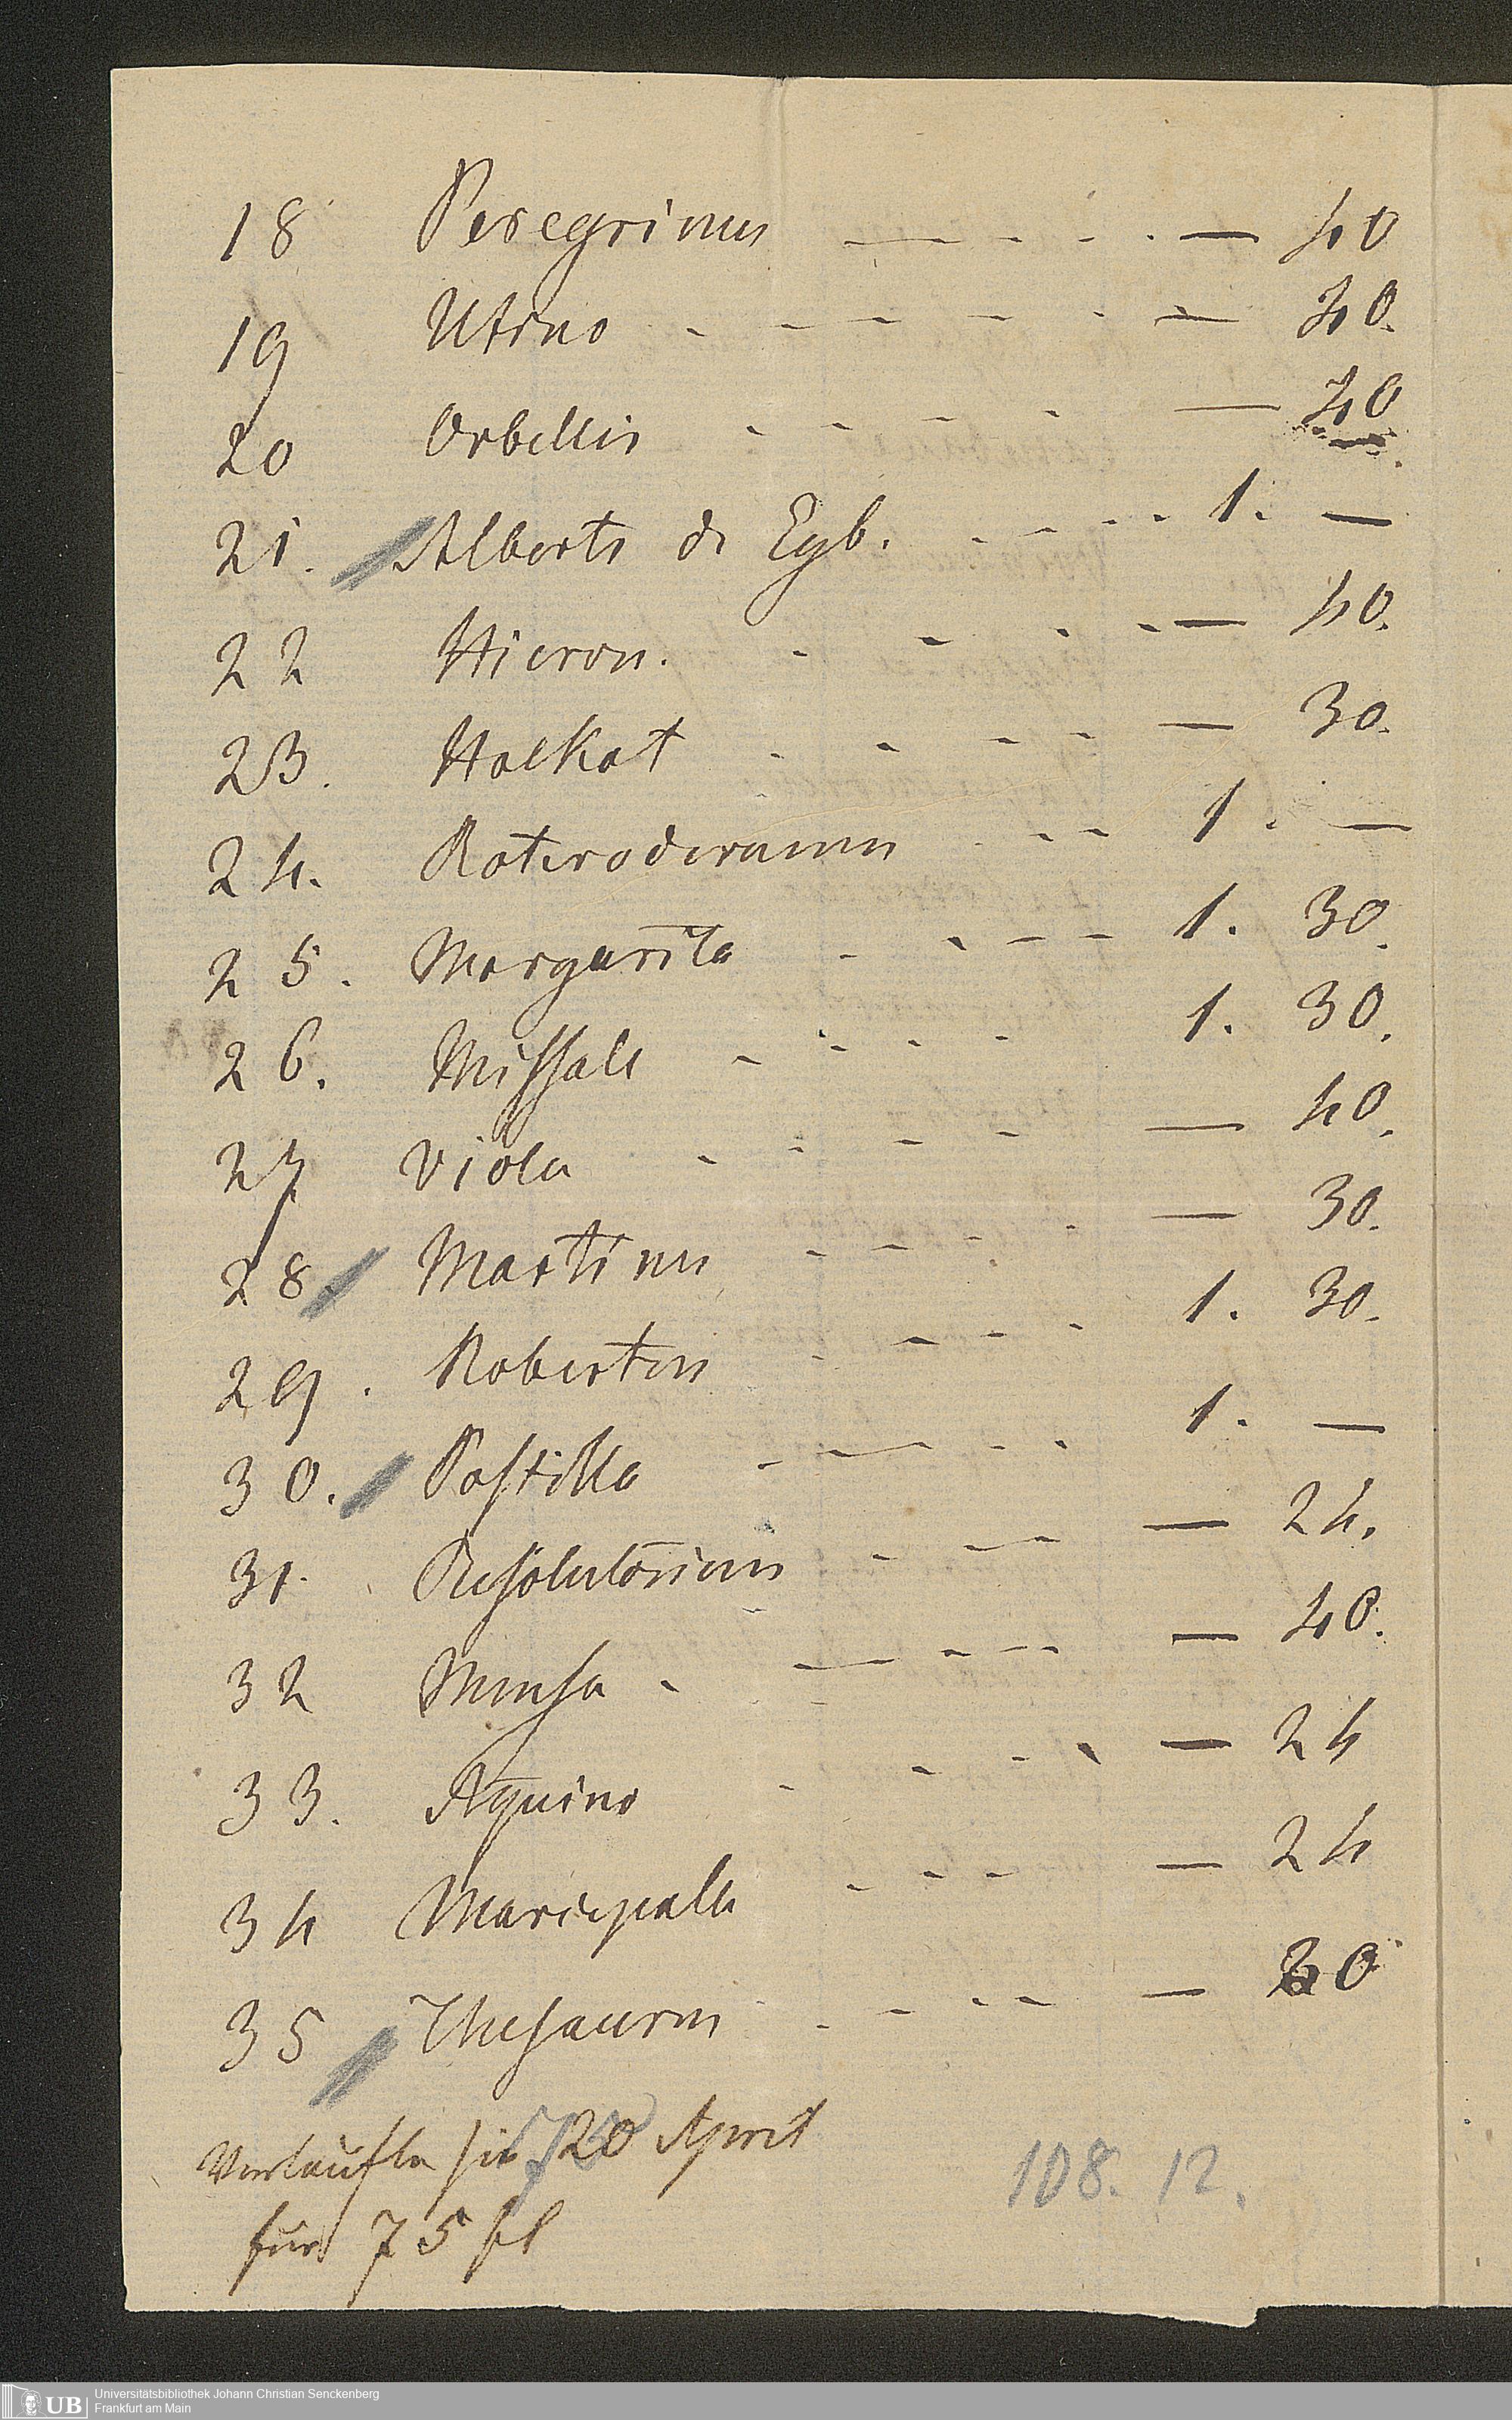 18 Peregrinus — - - - — 40
19 Utino - - - - - — 40.
20 Orbellis - - - - — 40.
21. Alberti de Eyb. - - - - 1. —
22 Hieron. - - - - — 40.
23. Holkot - - - - — 30.
24. Roterodamus - - 1. —
25. Margarita - - - - 1. 30.
26. Missale - - - - 1. 30.
27 Viola - - - - — 40.
28. Martinus - - - - — 30.
29. Robertus - - - - 1. 30.
30. Postilla - — - - 1. —
31. Resolutorium - - - — 24.
32 Mensa - — - - - — 40.
33. Aquino - - - - — 24
34 Mariepalle - - - — 24
35 Thesaurus - - - - — 30
Verkaufte sie 20 April
für 75 fl
108. 12.
Universitätsbibliothek Johann Christian Senckenberg
Frankfurt am Main
UB